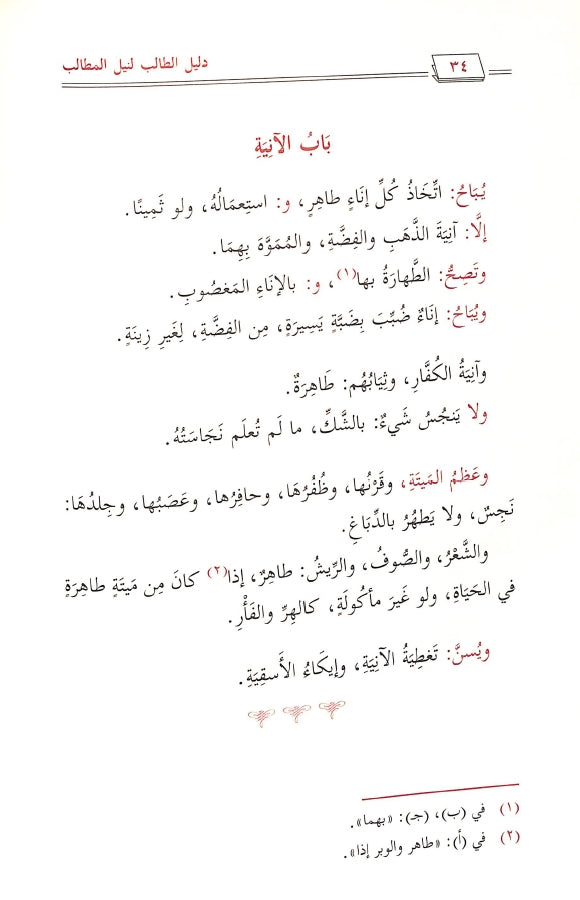 ٣٤
دليل الطالب لنيل المطالب
بَابُ الآنِيَةِ
يُبَاحُ: اتِّخَاذُ كُلِّ إنَاءٍ طاهِرٍ، و: استِعمَالُهُ، ولو ثَمِينًا.
إلَّا: آنِيَةَ الذَّهَبِ والفِضَّةِ، والمُمَوَّهَ بِهِمَا.
وتَصِحُّ: الطَّهارَةُ بها(١)، و: بالإنَاءِ المَغصُوبِ.
ويُبَاحُ: إنَاءٌ ضُبِّبَ بِضَبَّةٍ يَسِيرَةٍ، مِن الفِضَّةِ، لِغَيرِ زِينَةٍ.
وآنِيَةُ الكُفَّارِ، وثِيَابُهُم: طَاهِرَةٌ.
ولا يَنجُسُ شَيءٌ: بالشَّكِّ، ما لَم تُعلَم نَجَاسَتُهُ.
وعَظمُ المَيتَةِ، وقَرْنُها، وظُفُرُهَا، وحافِرُها، وعَصَبُها، وجِلدُهَا:
نَجِسٌ، ولا يَطهُرُ بالدِّبَاغِ.
والشَّعْرُ، والصُّوفُ، والرِّيشُ: طاهِرٌ، إذا(٢) كانَ مِن مَيتَةٍ طاهِرَةٍ
في الحَيَاةِ، ولو غَيرَ مأكُولَةٍ، كالهِرِّ والفَأْرِ.
ويُسنُّ: تَغطِيَةُ الآنِيَةِ، وإيكَاءُ الأَسقِيَةِ.
(١) في (ب)، (جـ): «بهما».
(٢) في (أ): «طاهر والوبر إذا».